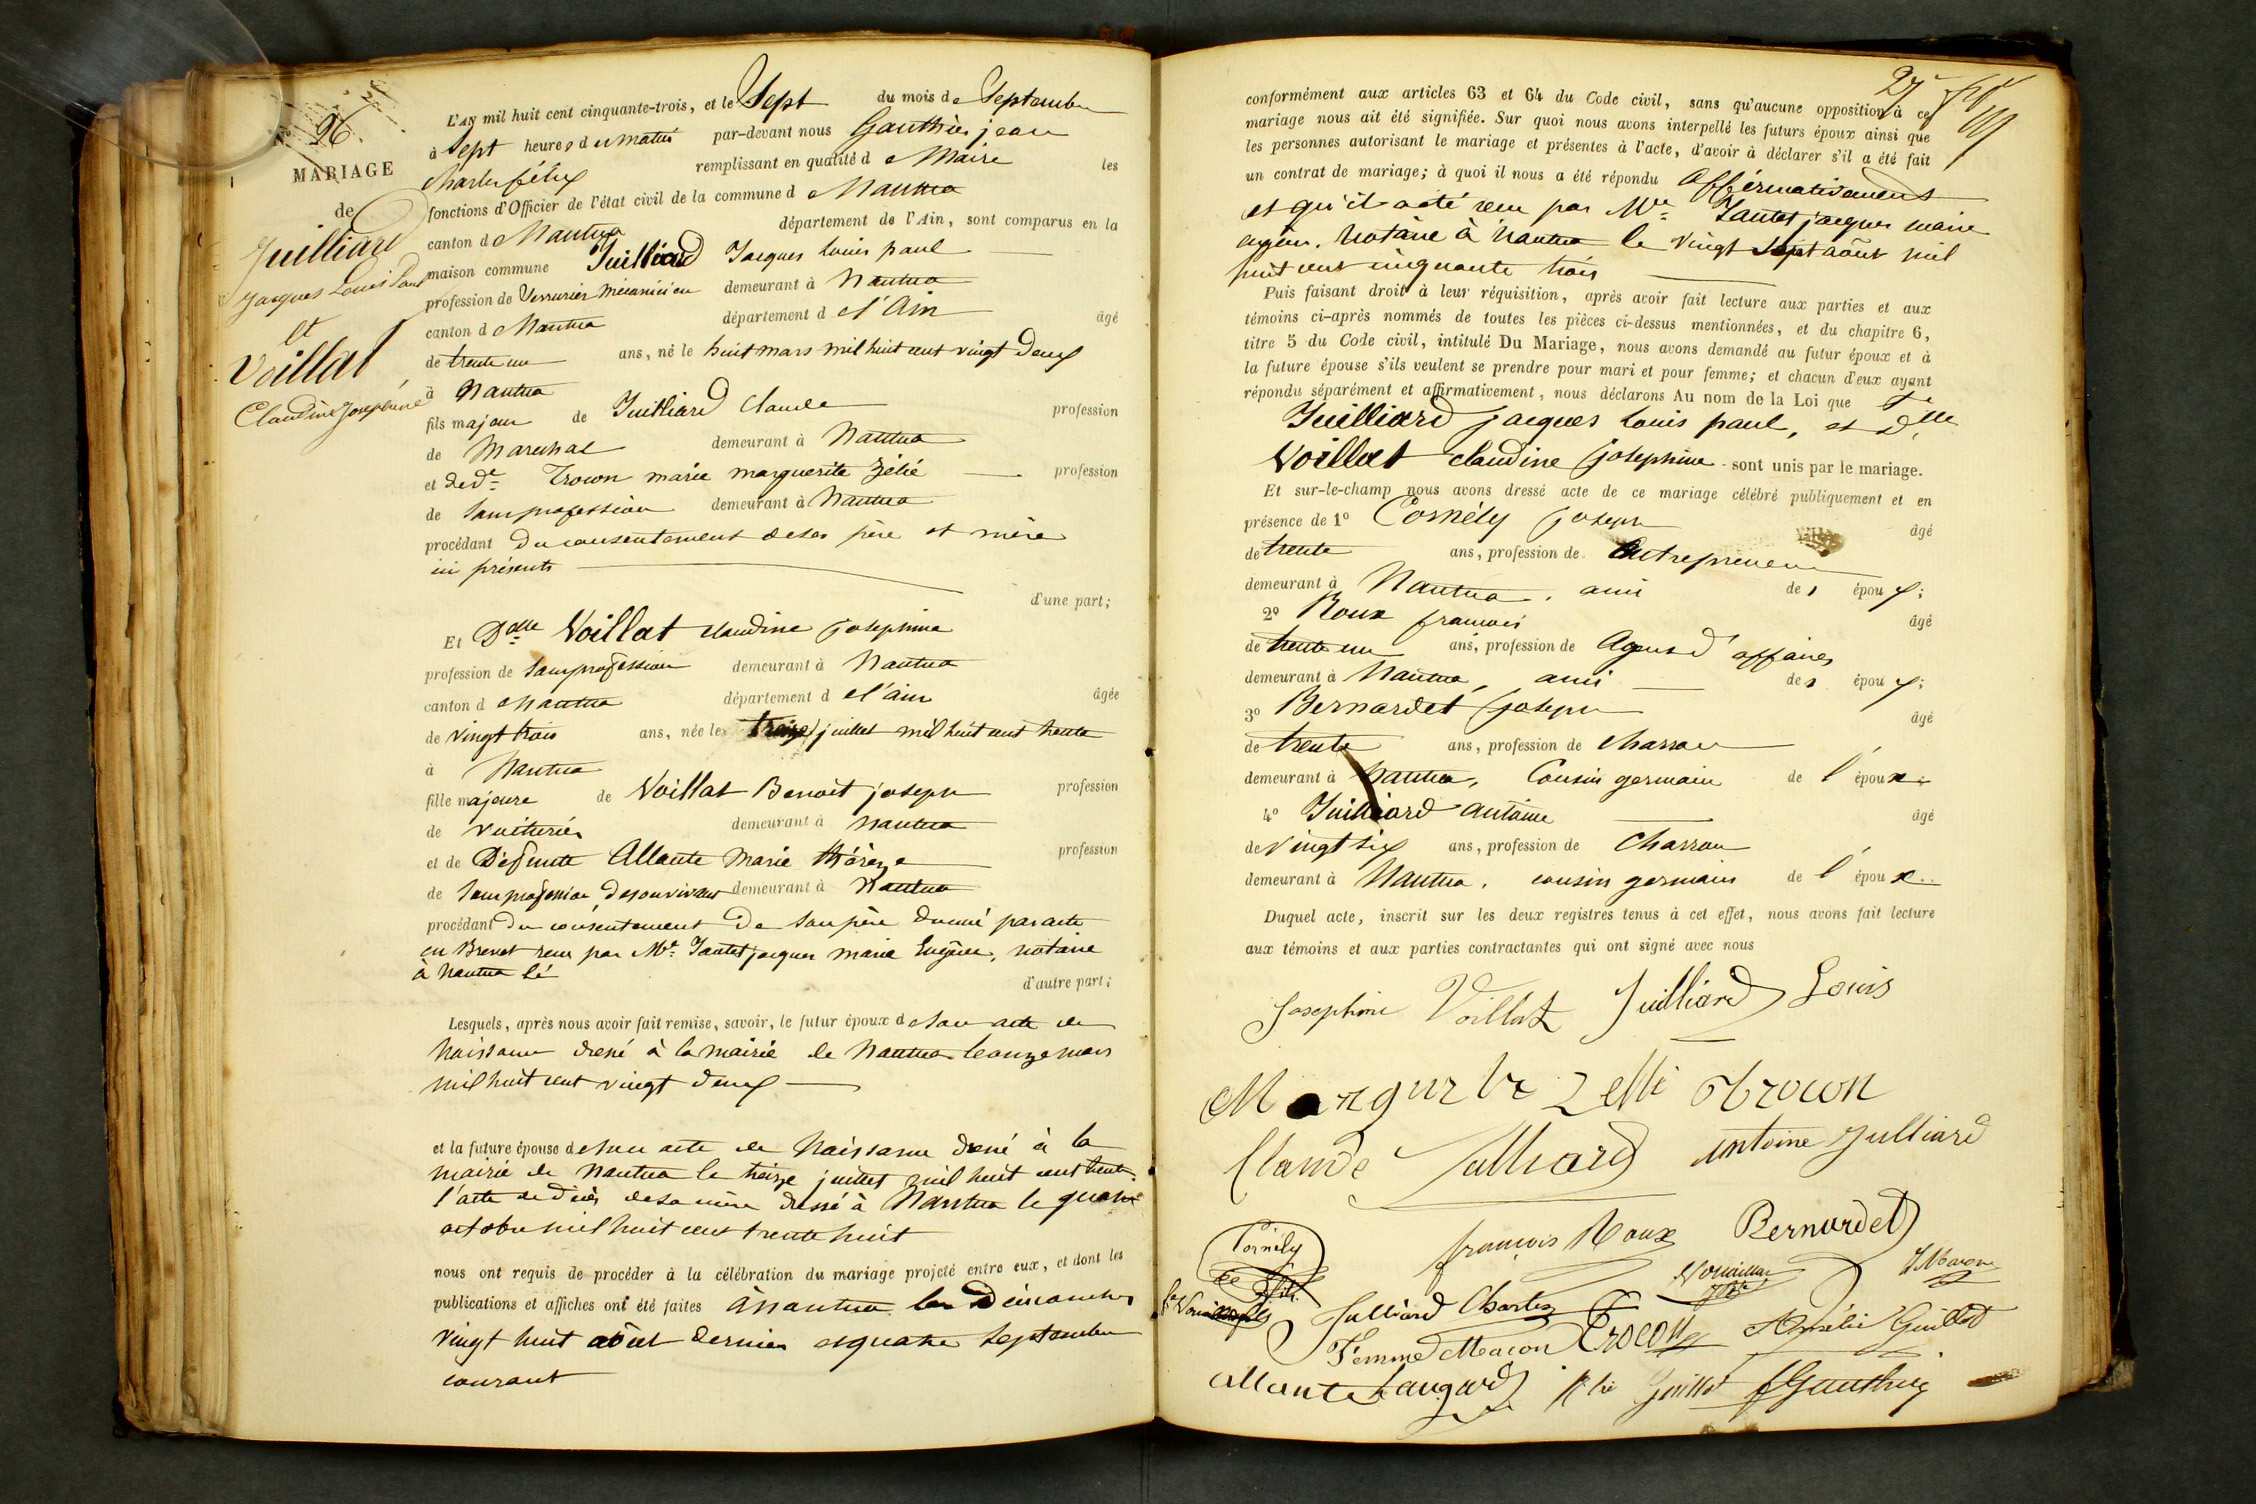 N° 26.
MARIAGE
de
Juilliard
Jacques Louis Paul
et
Voillat
Claudine Joséphine
L'AN mil huit cent cinquante-trois, et le Sept du mois de Septembre
à Sept heures du matin par-devant nous Gauthier jean
Charles félix remplissant en qualité de Maire les
fonctions d'Officier de l'état civil de la commune de Nantua
canton de Nantua département de l'Ain, sont comparus en la
maison commune Juilliard Jacques Louis paul
profession de Serrurier Mécanicien demeurant à Nantua
canton de Nantua département de l'Ain âgé
de trente un ans, né le huit mars mil huit cent vingt deux
à Nantua
fils majeur de Juilliard Claude profession
de Marechal demeurant à Nantua
et de de Trocon marie marguerite Zélié profession
de Sans profession demeurant à Nantua
procédant du consentement de ses père et mère
ici présents
d'une part;
Et Delle Voillat claudine josephine
profession de Sans profession demeurant à Nantua
canton de Nantua département de l'ain âgée
de vingt trois ans, née le treize juillet mil huit cent trente
à Nantua
fille majeure de Voillat Benoit joseph profession
de voiturier demeurant à Nantua
et de Défunte Allante Marie thérèze profession
de Sans profession, de son vivant demeurant à Nantua
procédant du consentement de son père donné par acte
en Brevet reçu par Me Jantet jacques marie Eugène, notaire
à Nantua le
d'autre part;
Lesquels, après nous avoir fait remise, savoir, le futur époux de son acte de
Naissance dressé à la mairie de Nantua le onze mars
mil huit cent vingt deux
et la future épouse de son acte de Naissance dressé à la
mairie de Nantua le treize juillet mil huit cent trente
l'acte de décès de sa mère dressé à Nantua le quatre
octobre mil huit cent trente huit
nous ont requis de procéder à la célébration du mariage projeté entre eux, et dont les
publications et affiches ont été faites à Nantua les Dimanches
vingt huit août dernier et quatre Septembre
courant
27
conformément aux articles 63 et 64 du Code civil, sans qu'aucune opposition à ce
mariage nous ait été signifiée. Sur quoi nous avons interpellé les futurs époux ainsi que
les personnes autorisant le mariage et présentes à l'acte, d'avoir à déclarer s'il a été fait
un contrat de mariage; à quoi il nous a été répondu affirmativement
et qu'il a été reçu par Me Jantet jacques marie
eugène, Notaire à Nantua le vingt Sept août mil
huit cent cinquante trois
Puis faisant droit à leur réquisition, après avoir fait lecture aux parties et aux
témoins ci-après nommés de toutes les pièces ci-dessus mentionnées, et du chapitre 6,
titre 5 du Code civil, intitulé Du Mariage, nous avons demandé au futur époux et à
la future épouse s'ils veulent se prendre pour mari et pour femme; et chacun d'eux ayant
répondu séparément et affirmativement, nous déclarons Au nom de la Loi que
Juilliard jacques Louis paul, et Delle
Voillat claudine josephine sont unis par le mariage.
Et sur-le-champ nous avons dressé acte de ce mariage célébré publiquement et en
présence de 1° Cornély joseph âgé
de trente ans, profession de Entrepreneur
demeurant à Nantua, ami des époux;
2° Roux francois âgé
de trente un ans, profession de Agent d'affaires
demeurant à Nantua, ami des époux;
3° Bernardet joseph âgé
de trente ans, profession de charron
demeurant à Nantua, Cousin germain de l'époux;
4° Juilliard antoine âgé
de vingt six ans, profession de Charron
demeurant à Nantua, cousin germain de l'époux
Duquel acte, inscrit sur les deux registres tenus à cet effet, nous avons fait lecture
aux témoins et aux parties contractantes qui ont signé avec nous
Josephine Voillat Juilliard Louis
Zelli Trocon
Claude Julliard antoine Julliard
Cornély françois Roux Bernardet
Julliard Charles
Femme Macon Trocon Amélie Guillot
Allante Guillot Gauthier